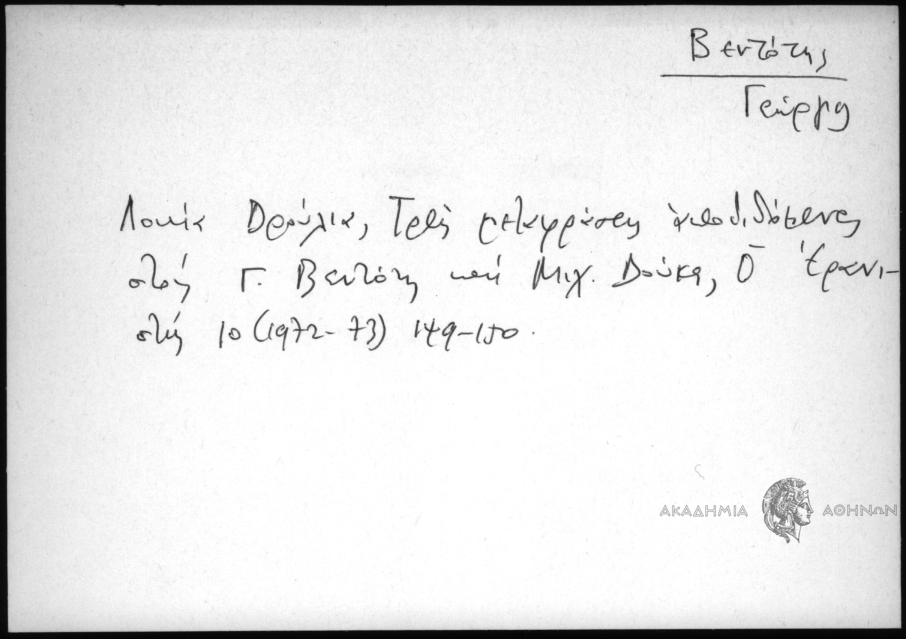 Βεντότης
Γεώργιος
Λουκία Δρούλια, Τρεῖς μεταφράσεις ἀποδιδόμενες
στούς Γ. Βεντότη καί Μιχ. Δούκα, Ὁ Ἐρανι-
στής 10 (1972-73) 149-150.
ΑΚΑΔΗΜΙΑ ΑΘΗΝΩΝ